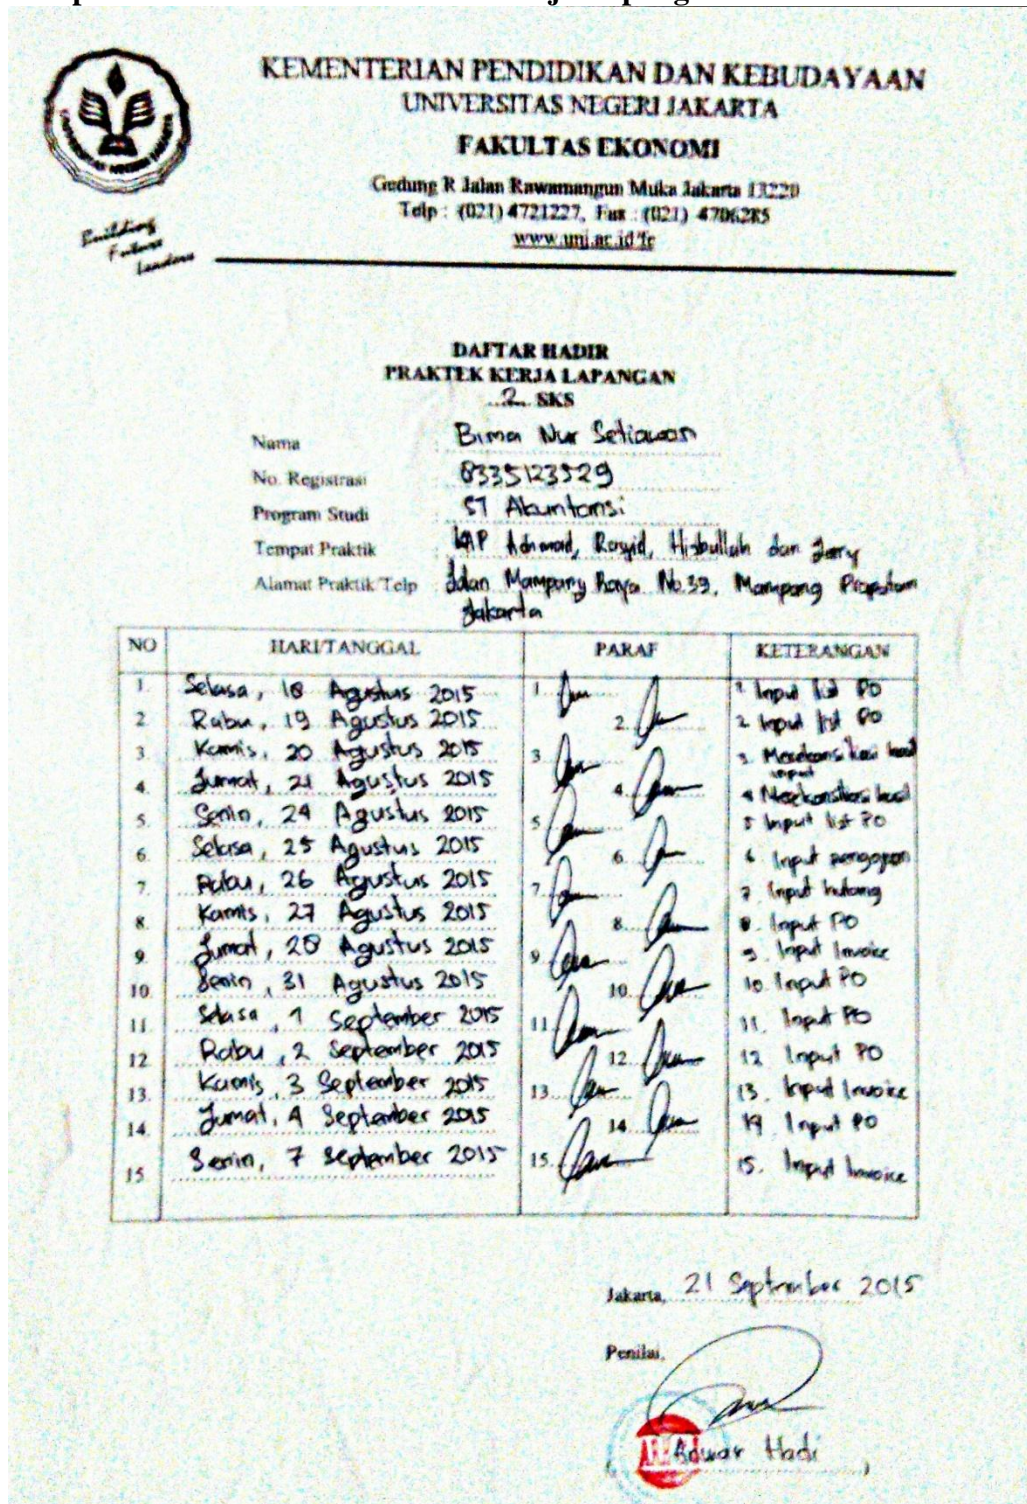 KEMENTERIAN PENDIDIKAN DAN KEBUDAYAAN
UNIVERSITAS NEGERI JAKARTA
FAKULTAS EKONOMI
Gedung R Jalan Rawamangun Muka Jakarta 13220
Telp : (021) 4721227, Fax : (021) 4706285
www.unj.ac.id/fe
Building
Future
Leaders
DAFTAR HADIR
PRAKTEK KERJA LAPANGAN
2 SKS
Nama Bima Nur Setiawan
No. Registrasi 8335123529
Program Studi S1 Akuntansi
Tempat Praktik KAP Achmad, Rasyid, Hisbullah dan Jerry
Alamat Praktik/Telp Jalan Mampang Raya No.39, Mampang
Jakarta
NO HARI/TANGGAL PARAF KETERANGAN
1. Selasa, 18 Agustus 2015 1. 1. Input list PO
2. Rabu, 19 Agustus 2015 2. 2. Input list PO
3. Kamis, 20 Agustus 2015 3. 3. hasil input
4. Jumat, 21 Agustus 2015 4. 4. hasil
5. Senin, 24 Agustus 2015 5. 5. Input list PO
6. Selasa, 25 Agustus 2015 6. 6. Input
7. Rabu, 26 Agustus 2015 7. 7. Input hutang
8. Kamis, 27 Agustus 2015 8. 8. Input PO
9. Jumat, 28 Agustus 2015 9. 9. Input Invoice
10. Senin, 31 Agustus 2015 10. 10. Input PO
11. Selasa, 1 September 2015 11. 11. Input PO
12. Rabu, 2 September 2015 12. 12. Input PO
13. Kamis, 3 September 2015 13. 13. Input Invoice
14. Jumat, 4 September 2015 14. 14. Input PO
15. Senin, 7 September 2015 15. 15. Input Invoice
Jakarta, 21 September 2015
Penilai,
( Adwar Hadi )